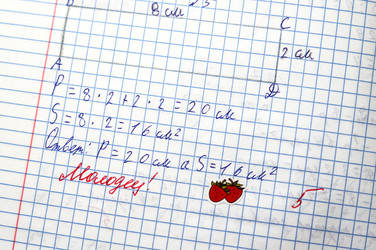 8 см
C
2 см
A
D
P = 8 · 2 + 2 · 2 = 20 см
S = 8 · 2 = 16 см²
Ответ: P = 20 см а S = 16 см²
Молодец!
5